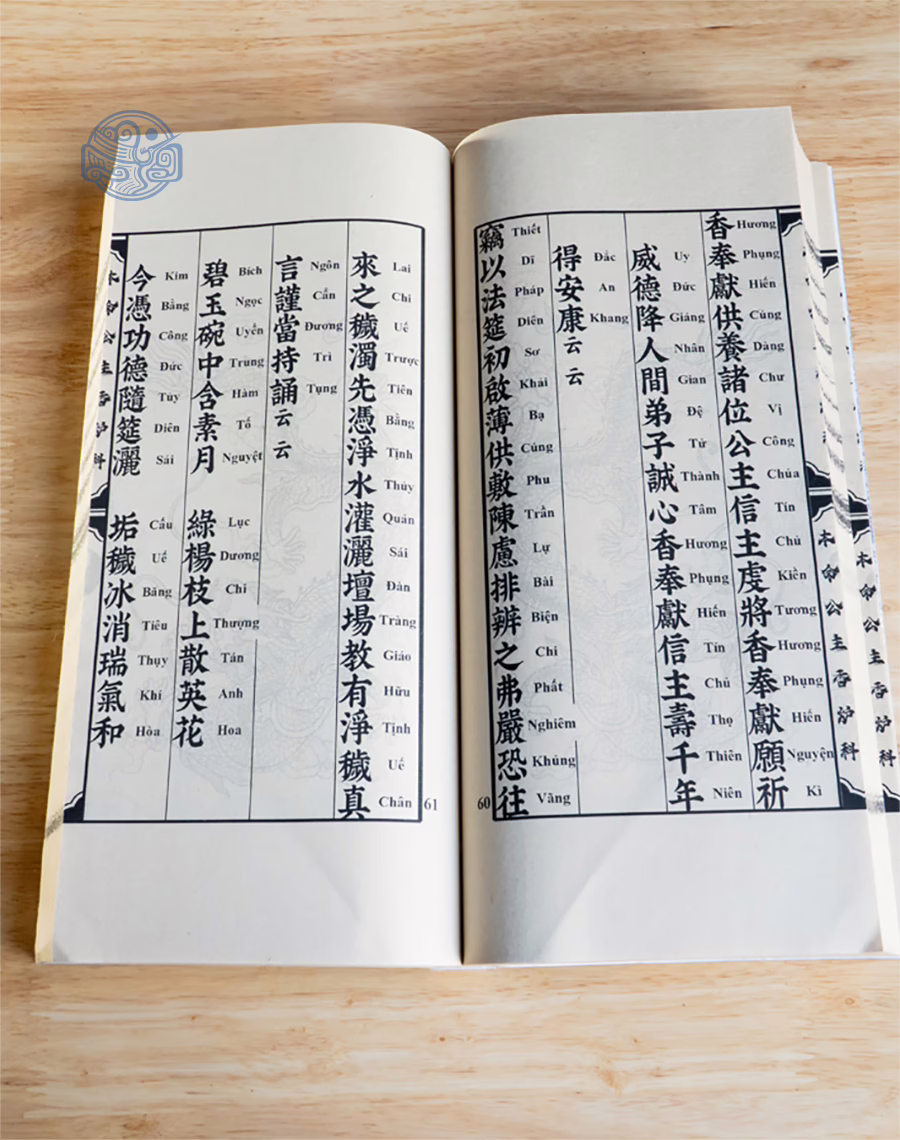 香奉獻供養諸位公主信主虔將香奉獻願祈
Hương Phụng Hiến Cúng Dàng Chư Vị Công Chúa Tín Chủ Kiền Tương Hương Phụng Hiến Nguyện Kì
威德降人間弟子誠心香奉獻信主壽千年
Uy Đức Giáng Nhân Gian Đệ Tử Thành Tâm Hương Phụng Hiến Tín Chủ Thọ Thiên Niên
得安康云云
Đắc An Khang
竊以法筵初啟薄供敷陳慮排辨之弗嚴恐往
Thiết Dĩ Pháp Diên Sơ Khải Bạ Cúng Phu Trần Lự Bài Biện Chi Phất Nghiêm Khủng Vãng
60
來之穢濁先憑淨水灌灑壇場教有淨穢真
Lai Chi Uế Trược Tiên Bằng Tịnh Thủy Quán Sái Đàn Tràng Giáo Hữu Tịnh Uế Chân
言謹當持誦云云
Ngôn Cẩn Đương Trì Tụng
碧玉碗中含素月 綠楊枝上散英花
Bích Ngọc Uyển Trung Hàm Tố Nguyệt Lục Dương Chi Thượng Tán Anh Hoa
今憑功德隨筵灑 垢穢冰消瑞氣和
Kim Bằng Công Đức Tùy Diên Sái Cấu Uế Băng Tiêu Thụy Khí Hòa
61
本命公主香炉科
本命公主香炉科
本命公主香炉科